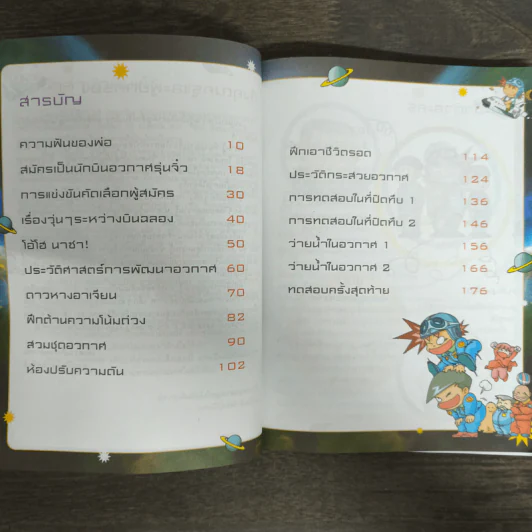 สารบัญ
ความฝันของพ่อ 10
สมัครเป็นนักบินอวกาศรุ่นจิ๋ว 18
การแข่งขันคัดเลือกผู้สมัคร 30
เรื่องวุ่นๆระหว่างบินฉลอง 40
โอ้โฮ นาซ่า! 50
ประวัติศาสตร์การพัฒนาอวกาศ 60
ดาวหางอาเจียน 70
ฝึกด้านความโน้มถ่วง 82
สวมชุดอวกาศ 90
ห้องปรับความดัน 102
ฝึกเอาชีวิตรอด 114
ประวัติกระสวยอวกาศ 124
การทดสอบในที่ปิดทึบ 1 136
การทดสอบในที่ปิดทึบ 2 146
ว่ายน้ำในอวกาศ 1 156
ว่ายน้ำในอวกาศ 2 166
ทดสอบครั้งสุดท้าย 176